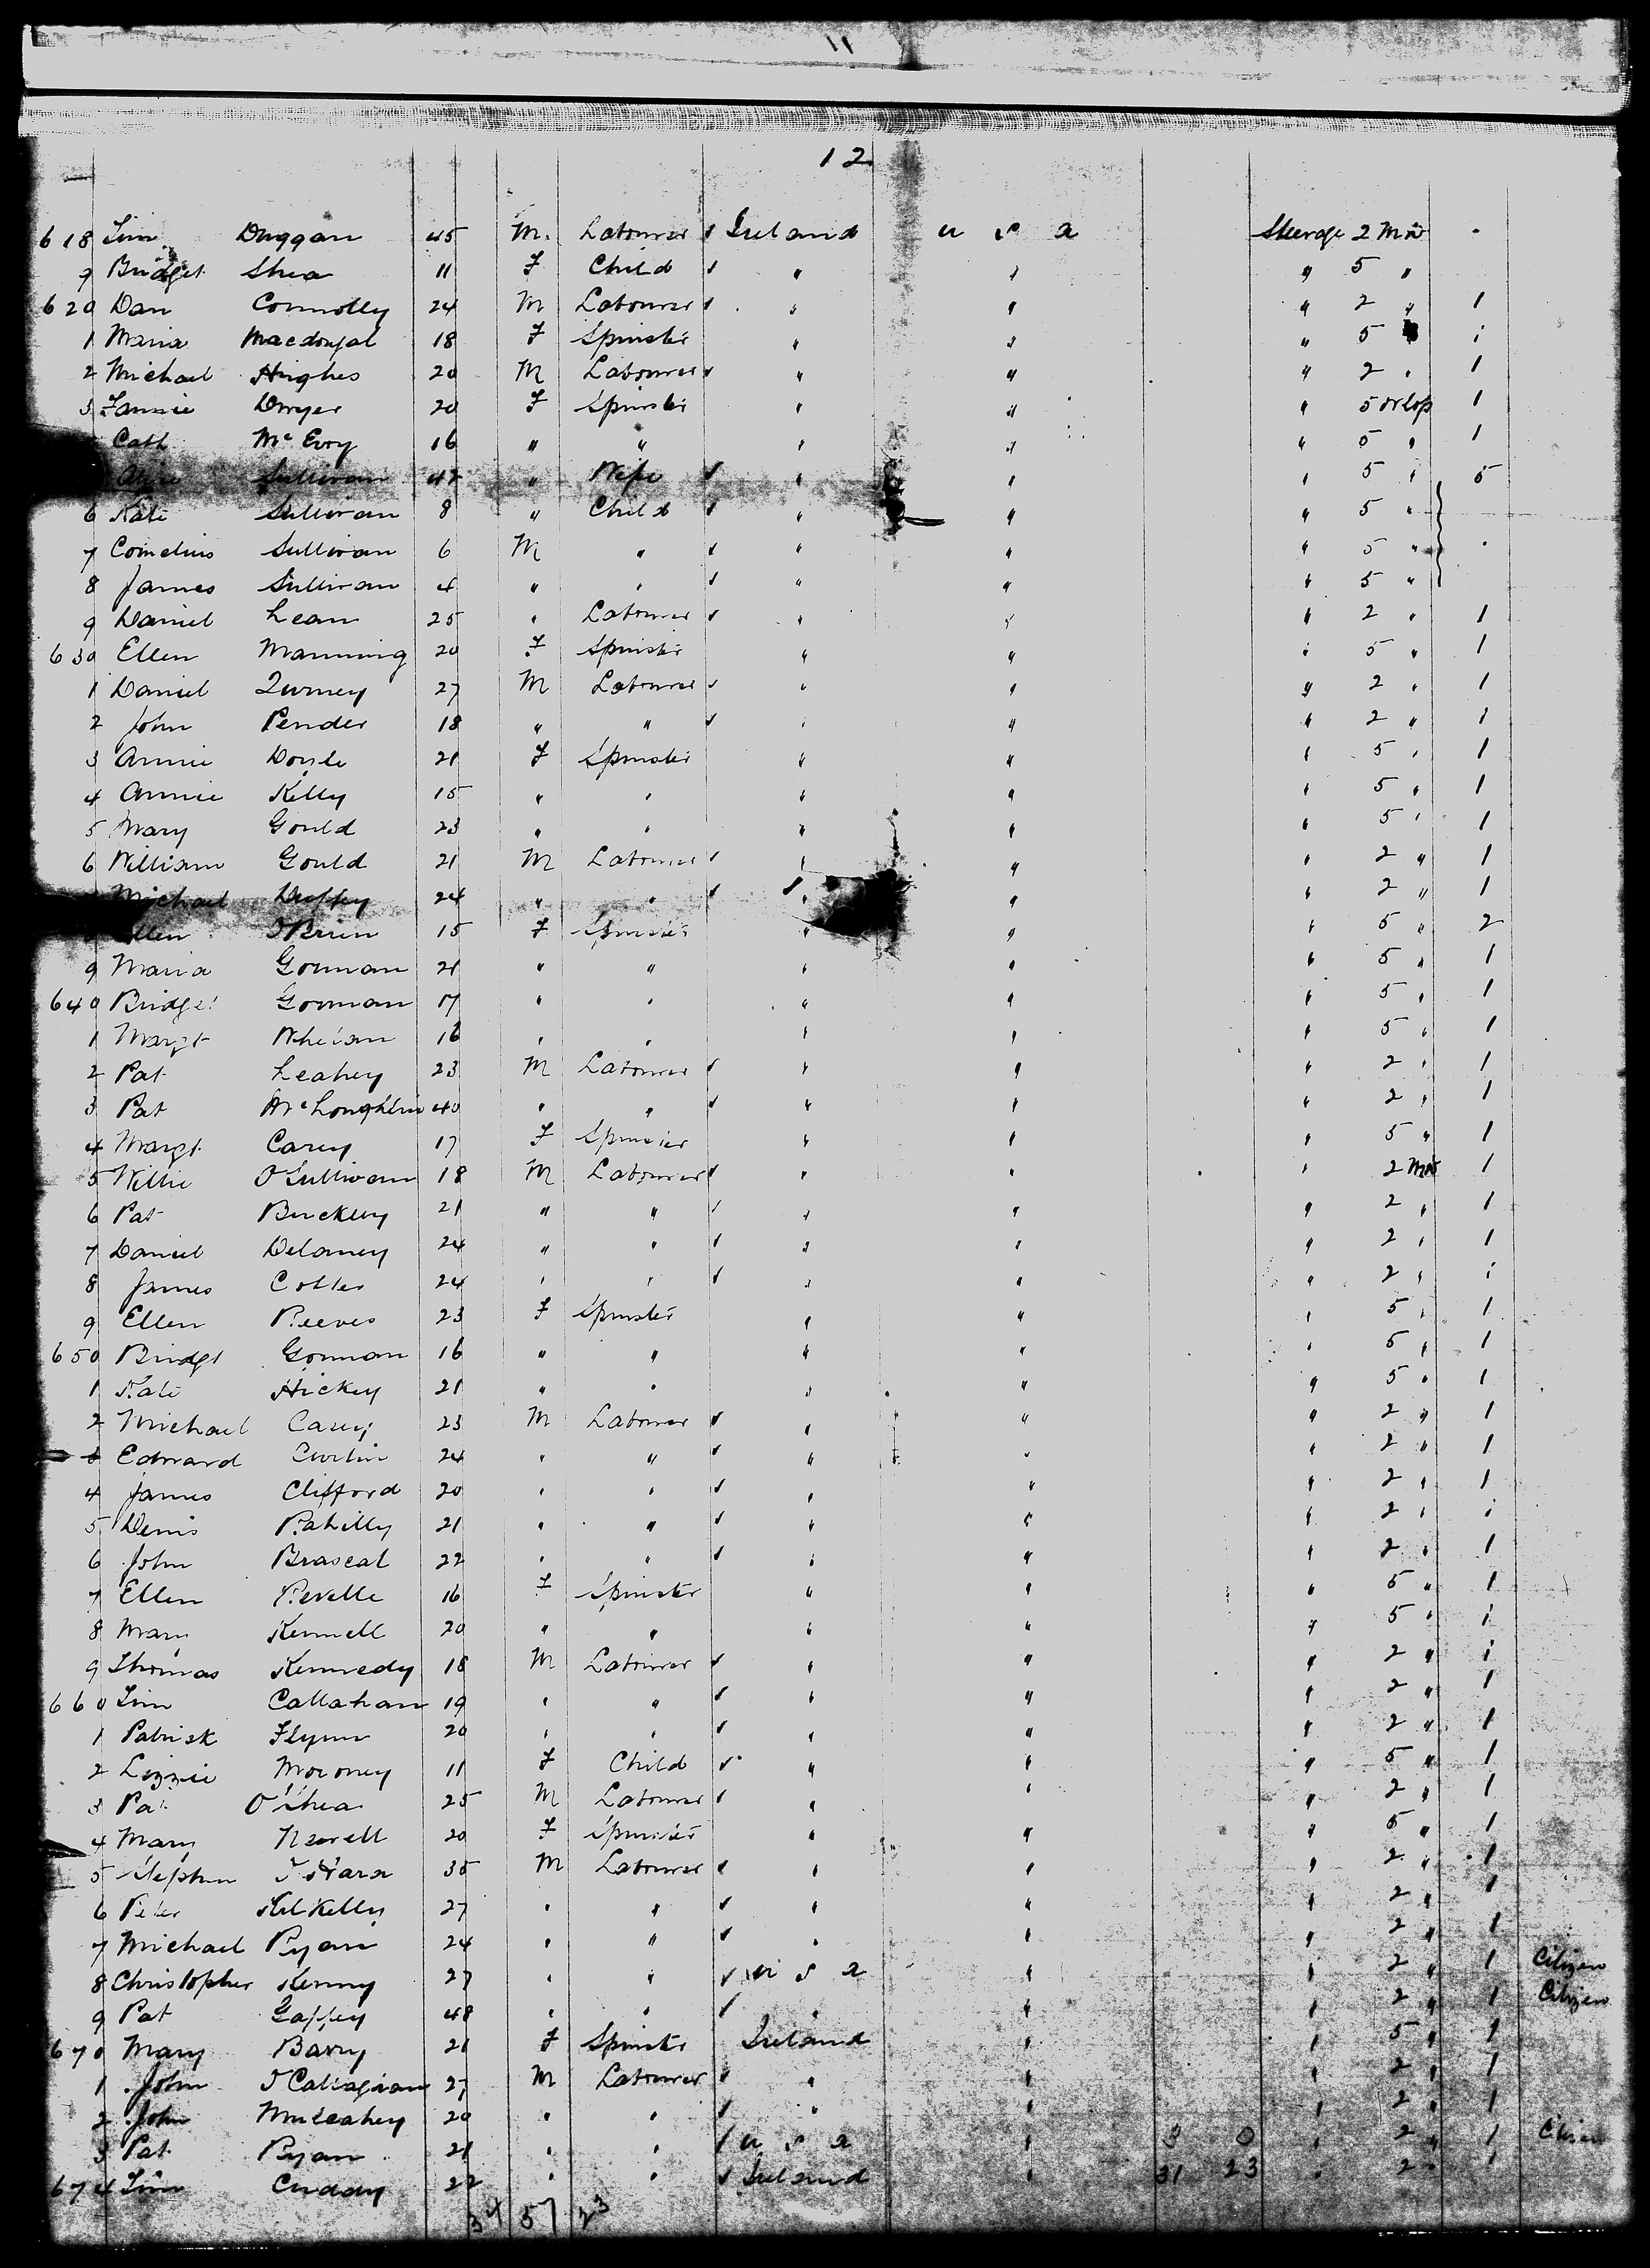 11
12
618 Tim Duggan 45 M. Labourer Ireland U S A Steerage 2 Mn
9 Bridget Shea 11 F Child " " " 5 "
620 Dan Connolly 24 M Labourer " " " 2 " 1
1 Maria Macdougal 18 F Spinster " " " 5 1
2 Michael Hughes 20 M Labourer " " " 2 " 1
3 Fannie Dwyer 20 F Spinster " " " 5 Orlop 1
Cath McEvoy 16 " " " " " 5 " 1
Alice Sullivan 42 " Wife " " " 5 " 5
6 Kate Sullivan 8 " Child " " " 5 "
7 Cornelius Sullivan 6 M " " " " 5 "
8 James Sullivan 4 " " " " " 5 "
9 Daniel Lean 25 " Labourer " " " 2 " 1
630 Ellen Manning 20 F Spinster " " " 5 " 1
1 Daniel 27 M Labourer " " " 2 " 1
2 John Pender 18 " " " " " 2 " 1
3 Annie Doyle 21 F Spinster " " " 5 " 1
4 Annie Kelly 15 " " " " " 5 " 1
5 Mary Gould 23 " " " " " 5 " 1
6 William Gould 21 M Labourer " " " 2 " 1
Michael Duffey 24 " " " " " 2 " 1
Ellen O'Brien 15 F Spinster " " " 5 " 2
9 Maria Gorman 21 " " " " " 5 " 1
640 Bridget Gorman 17 " " " " " 5 " 1
1 Margt Whelan 16 " " " " " 5 " 1
2 Pat Leahey 23 M Labourer " " " 2 " 1
3 Pat McLoughlin 40 " " " " " 2 " 1
4 Margt Carey 17 F Spinster " " " 5 " 1
5 Willie O'Sullivan 18 M Labourer " " " 2 Mn 1
6 Pat Buckley 21 " " " " " 2 " 1
7 Daniel Delaney 24 " " " " " 2 " 1
8 James Cotter 24 " " " " " 2 " 1
9 Ellen Reeves 23 F Spinster " " " 5 " 1
650 Bridgt Gorman 16 " " " " " 5 " 1
1 Kate Hickey 21 " " " " " 5 " 1
2 Michael Carey 23 M Labourer " " " 2 " 1
3 Edward Curtin 24 " " " " " 2 " 1
4 James Clifford 20 " " " " " 2 " 1
5 Denis Rahilly 21 " " " " " 2 " 1
6 John Brascal 22 " " " " " 2 " 1
7 Ellen Revelle 16 F Spinster " " " 5 " 1
8 Mary Kennell 20 " " " " " 5 " 1
9 Thomas Kennedy 18 M Labourer " " " 2 " 1
660 Tim Callahan 19 " " " " " 2 " 1
1 Patrick Flynn 20 " " " " " 2 " 1
2 Lizzie Moroney 11 F Child " " " 5 " 1
3 Pat O'Shea 25 M Labourer " " " 2 " 1
4 Mary Newell 20 F Spinster " " " 5 " 1
5 Stephen O'Hara 35 M Labourer " " " 2 " 1
6 Peter Kilkelly 27 " " " " " 2 " 1
7 Michael Ryan 24 " " " " " 2 " 1
8 Christopher Kenny 27 " " U S A " " 2 " 1 Citizen
9 Pat Gaffey 48 " " " " " 2 " 1 Citizen
670 Mary Barry 21 F Spinster Ireland " " 5 " 1
1 John O'Callaghan 27 M Labourer " " " 2 " 1
2 John Mulcahey 20 " " " " " 2 " 1
3 Pat Ryan 21 " " U S A " 3 0 " 2 " 1 Citizen
674 Tim Cuddy 22 " " Ireland " 31 23 " 2 " 1
34 57 23